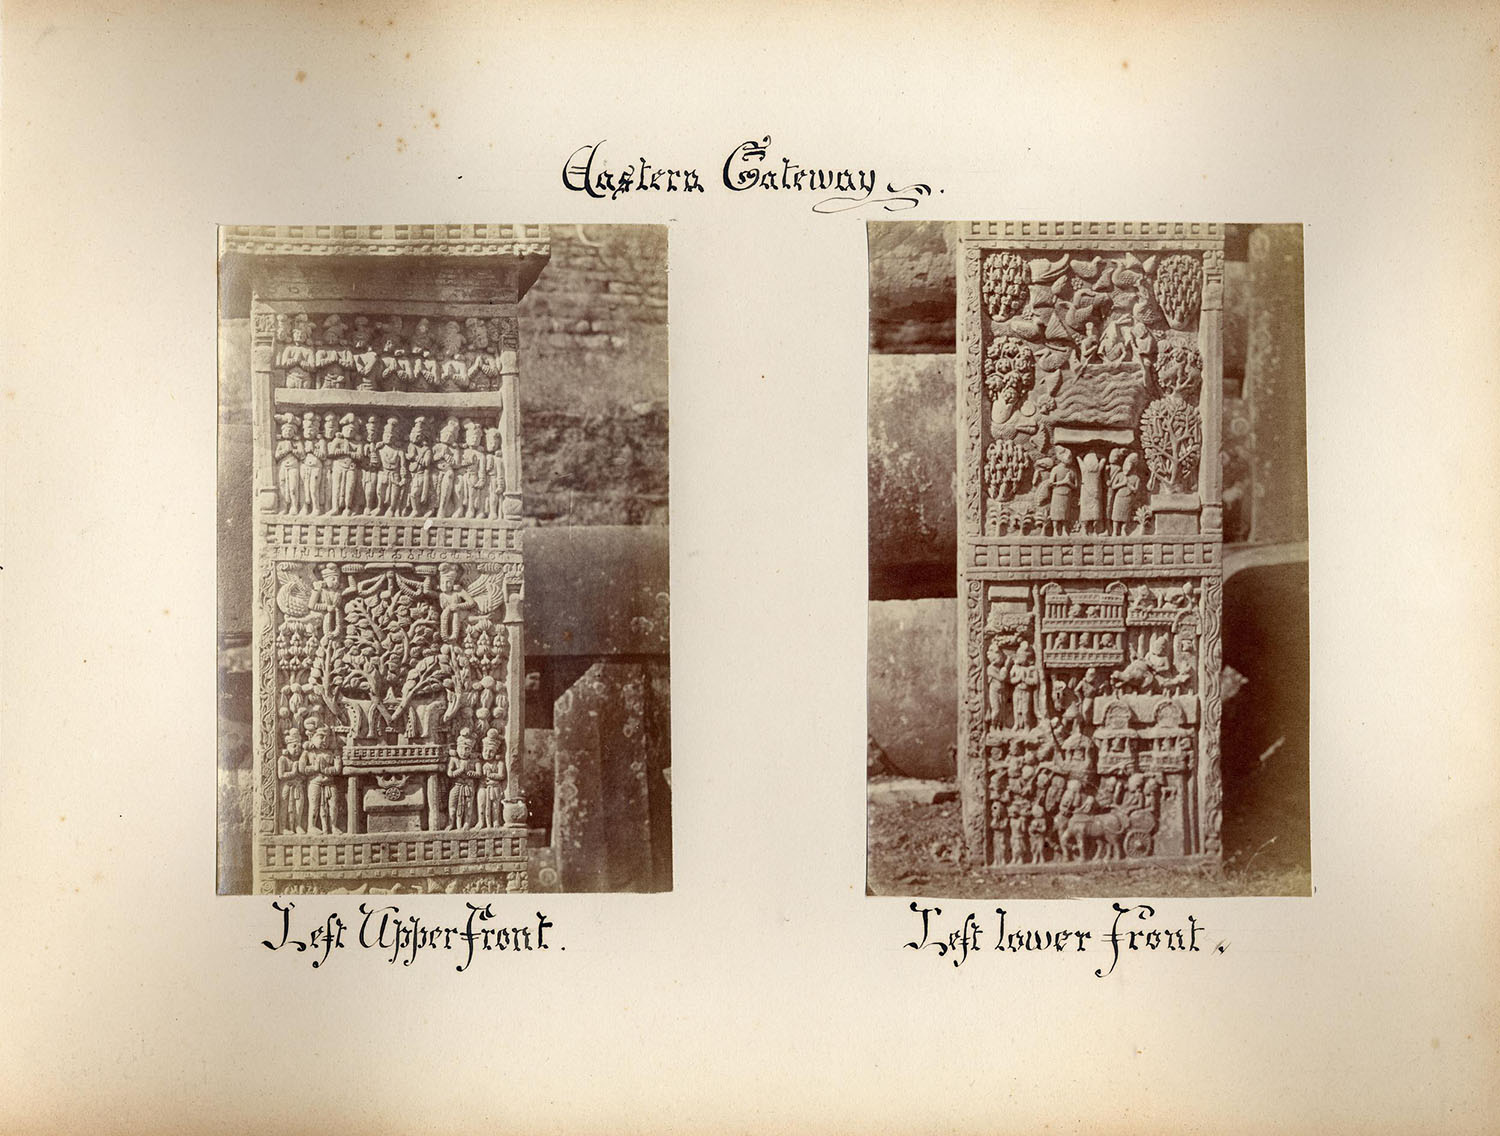 Eastern Gateway.
Left Upper Front.
Left lower Front.